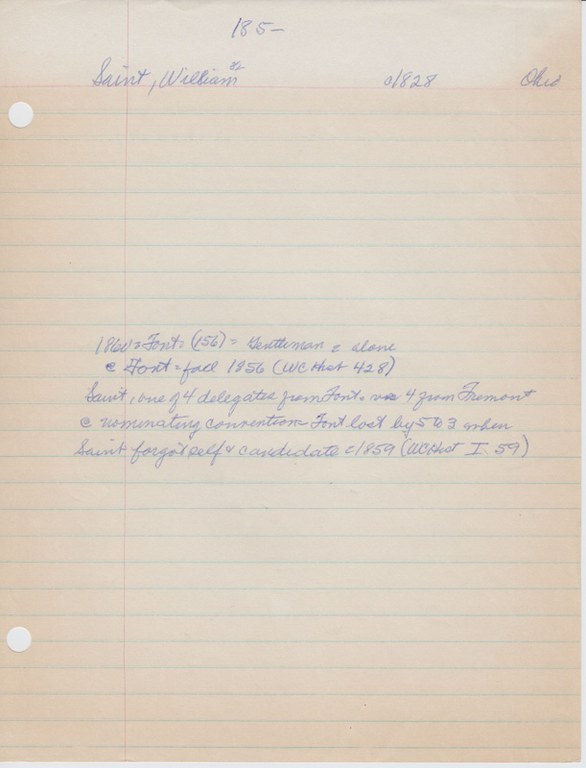 185-
Saint, William 32 c1828 Ohio
1860 = Font = (156) = Gentleman = alone
@ Font = fall 1856 (WC Hist 428)
Saint, one of 4 delegates from Font. vs 4 from Fremont
@ nominating convention Font lost by 5 to 3 when
Saint forgot self & candidate c1859 (WC Hist I. 59)